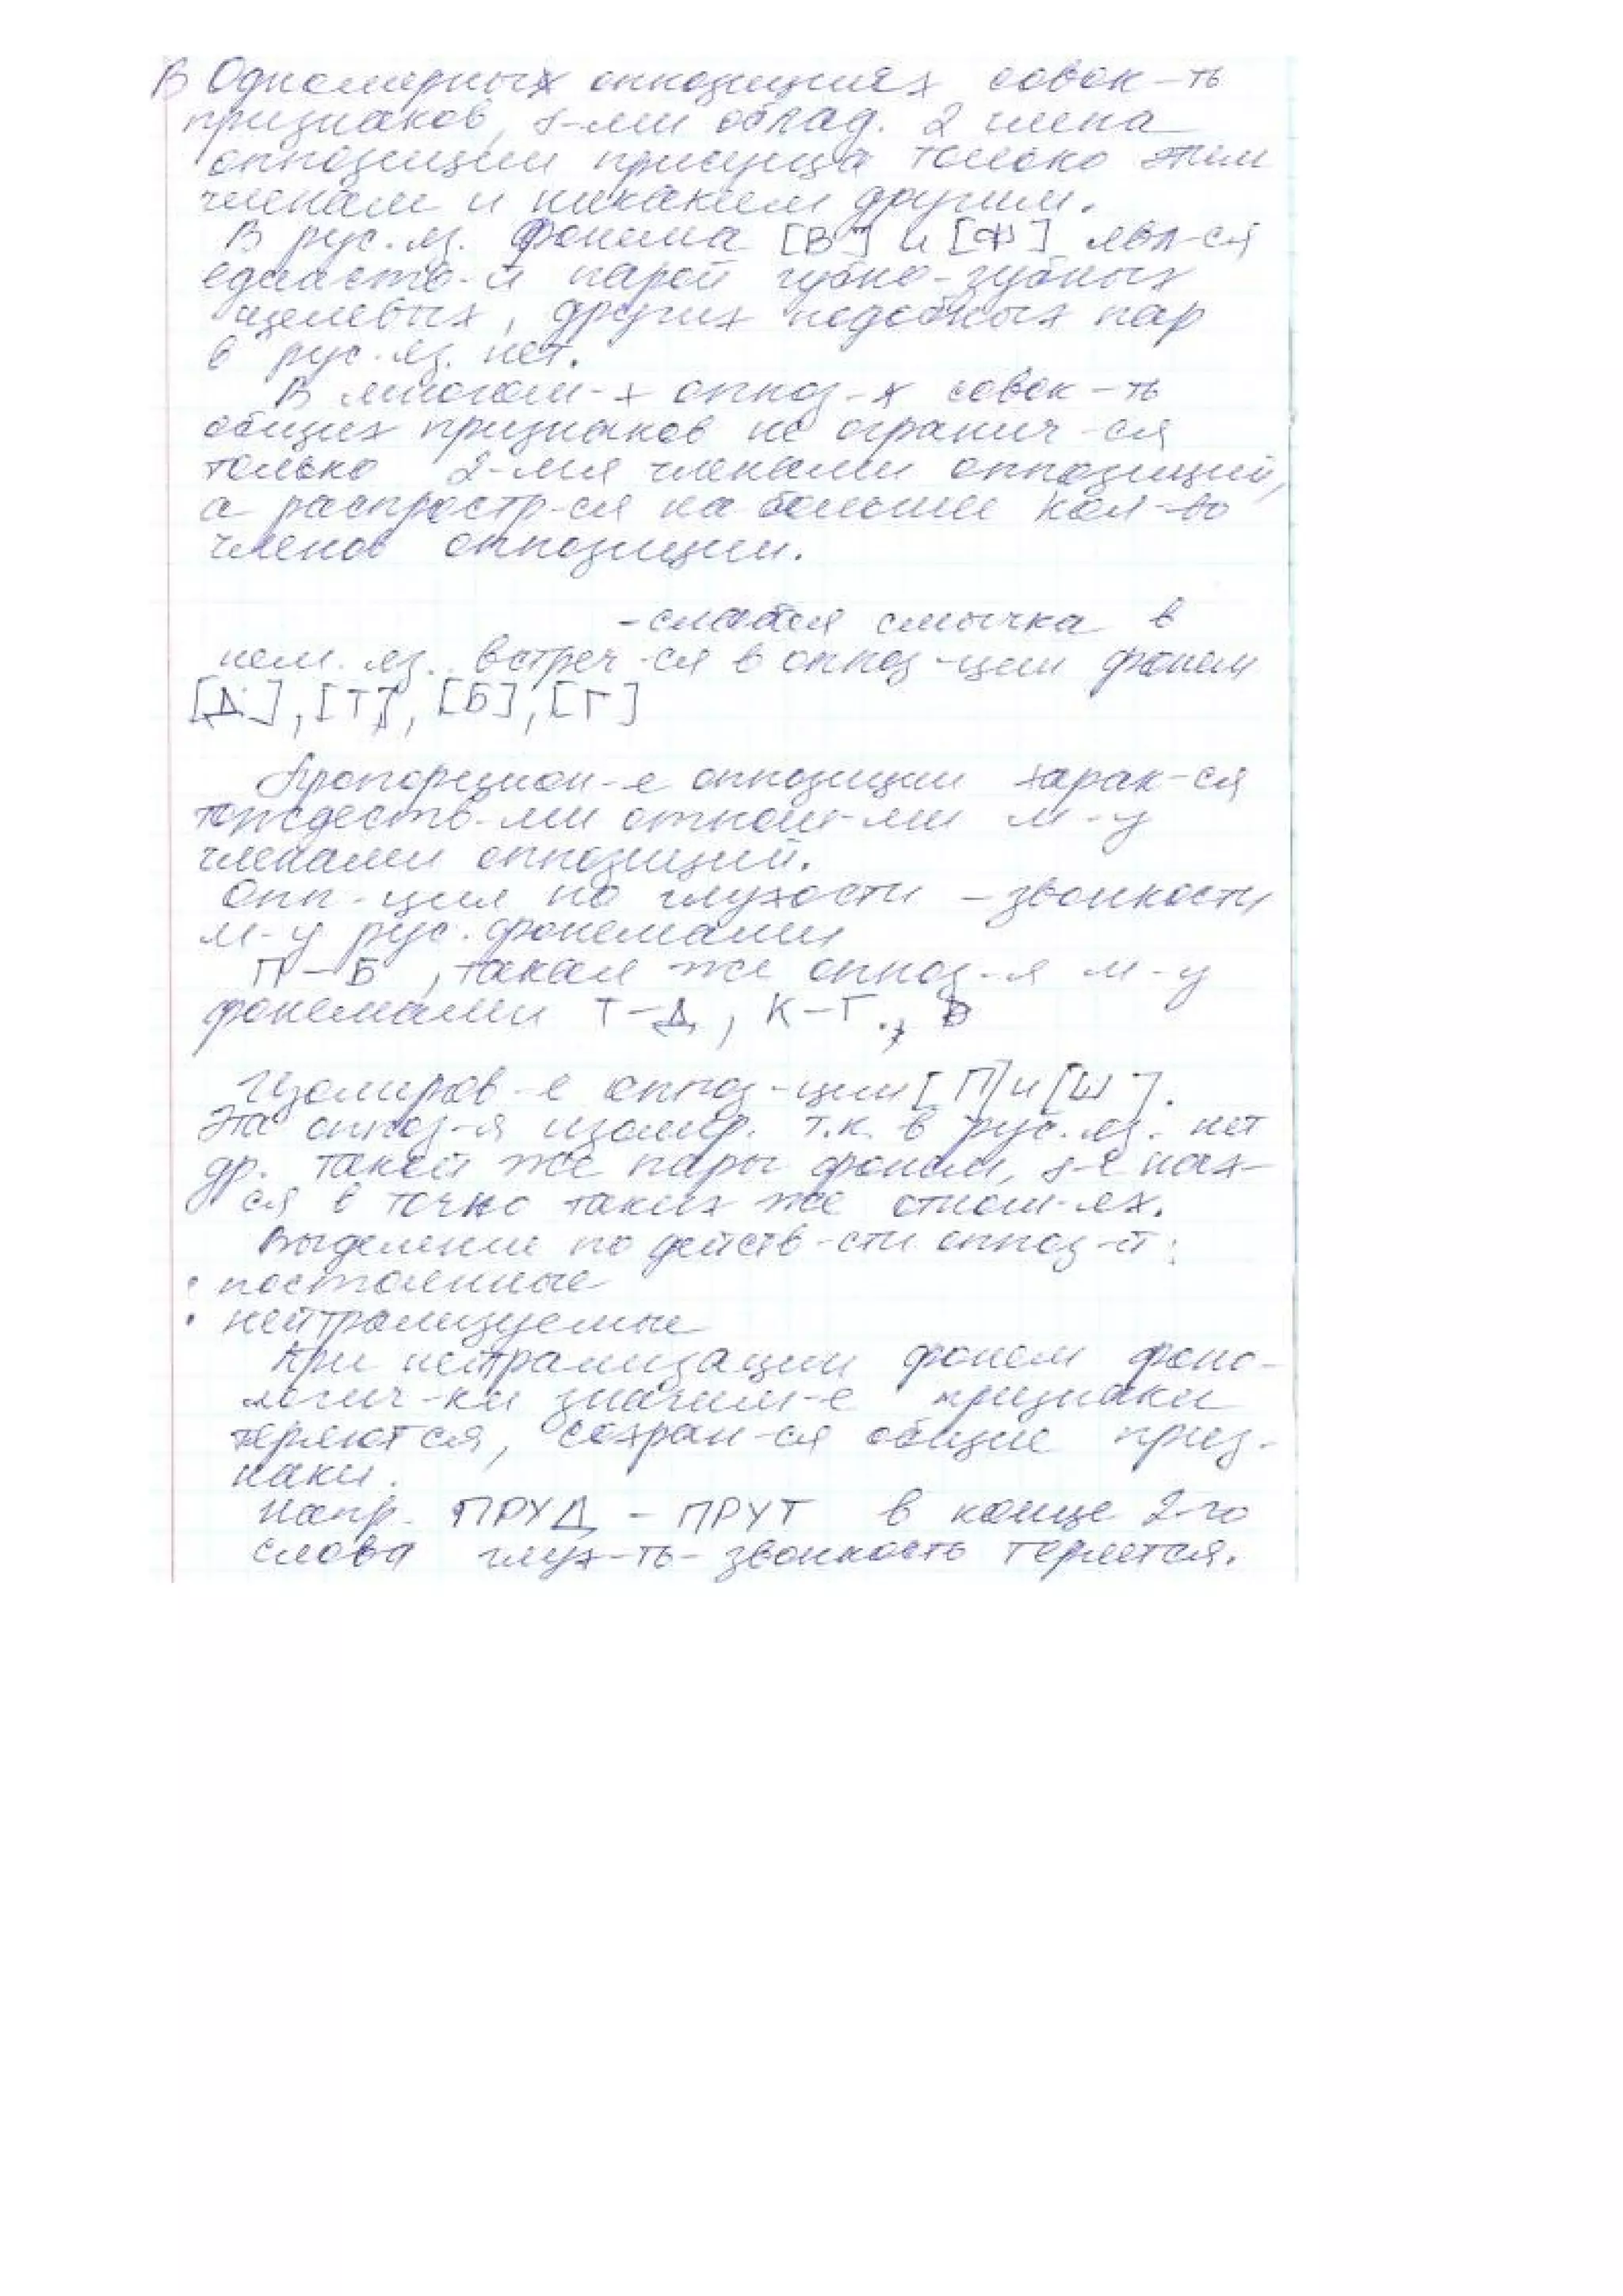 В Одномерных оппозициях совок-ть
признаков, к-ми облад. 2 члена
оппозиции присуща только этим
членам и никаким другим.
В рус. яз. фонема [В] и [Ф] явл-ся
единств-й парой губно-зубных
щелевых, других подобных пар
в рус. яз. нет.
В многом-х оппоз-х совок-ть
общих признаков не огранич-ся
только 2-мя членами оппозиций,
а распростр-ся на большее кол-во
членов оппозиции.
-слабая смычка в
нем. яз. встреч-ся в оппоз-ции фонем
[Д], [Т], [Б], [Г]
Пропорцион-е оппозиции харак-ся
тождеств-ми отнош-ми м-у
членами оппозиций.
Опп-ция по глухости - звонкости
м-у рус. фонемами
П - Б, такая же оппоз-я м-у
фонемами Т-Д, К-Г.,
Изолиров-е оппоз-ции [П] и [Ш].
Эта оппоз-я изолир. т.к. в рус. яз. нет
др. такой же пары фонем, к-е нах-
ся в точно таких же отнош-ях.
Выделение по действ-сти оппоз-й:
• постоянные
• нейтрализуемые
При нетрализации фонем фоно-
логич-ки значим-е признаки
теряются, сохран-ся общие приз-
наки.
Напр. ПРУД - ПРУТ в конце 2-го
слова глух-ть - звонкость теряется.